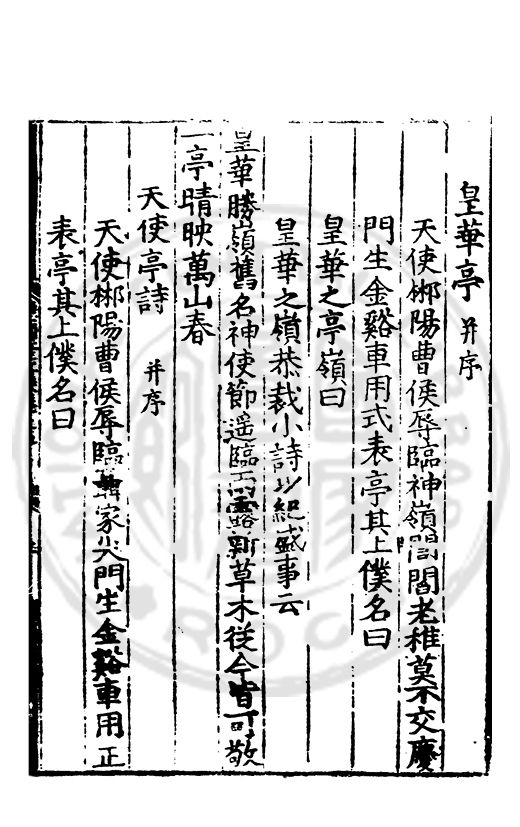 皇華亭 并序
天使郴陽曹侯辱臨神嶺閭閻老稚莫不交慶
門生金谿車用式表亭其上僕名曰
皇華之亭嶺曰
皇華之嶺恭裁小詩以紀盛事云
皇華勝嶺舊名神使節遥臨雨露新草木從今皆可敬
一亭晴映萬山春
天使亭詩 并序
天使郴陽曹侯辱臨聶家尖門生金谿車用正
表亭其上僕名曰